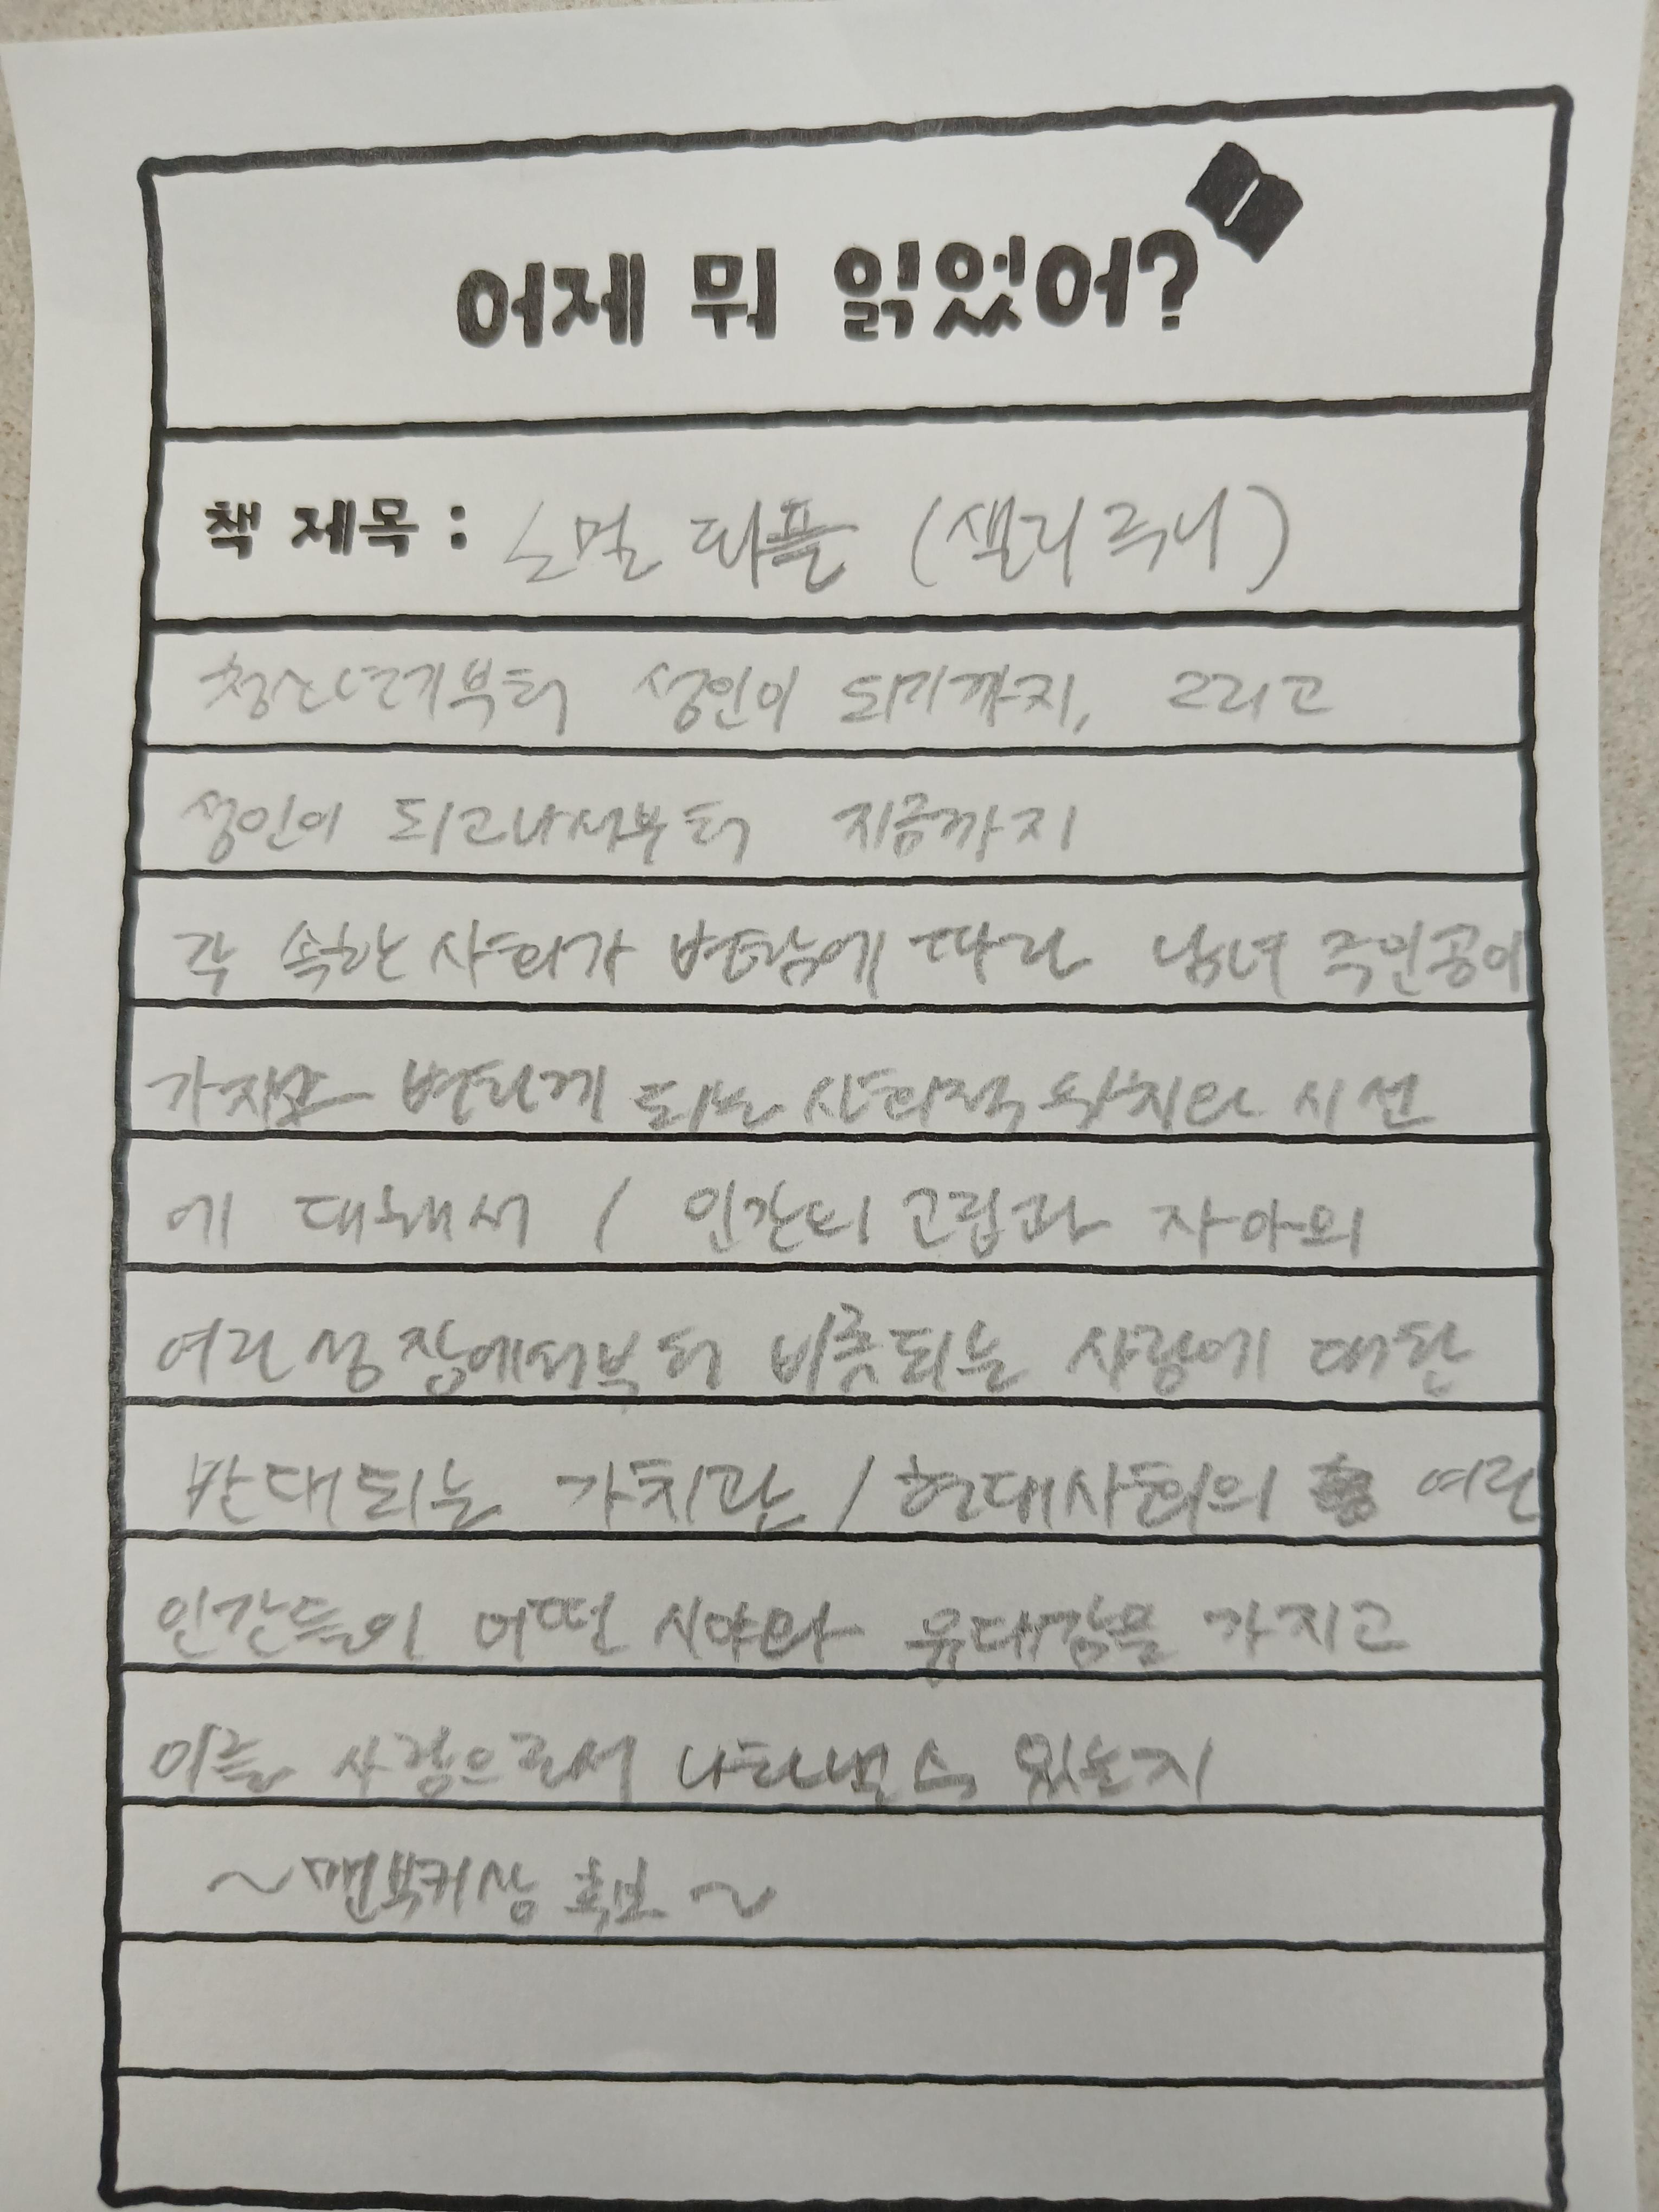 어제 뭐 읽었어?
책 제목 : 노멀 피플 (샐리 루니)
청소년기부터 성인이 되기까지, 그리고
성인이 되고나서부터 지금까지
각 속한 사회가 변함에 따라 남녀 주인공이
변하게 되는 사회적 위치와 시선
에 대해서 / 인간의 고립과 자아의
여린 성장에서부터 비롯되는 사랑에 대한
반대되는 가치관 / 현대사회의 여린
인간들이 어떤 시야와 유대감을 가지고
이를 사람으로서 나타낼 수 있는지
~맨부커상 후보~